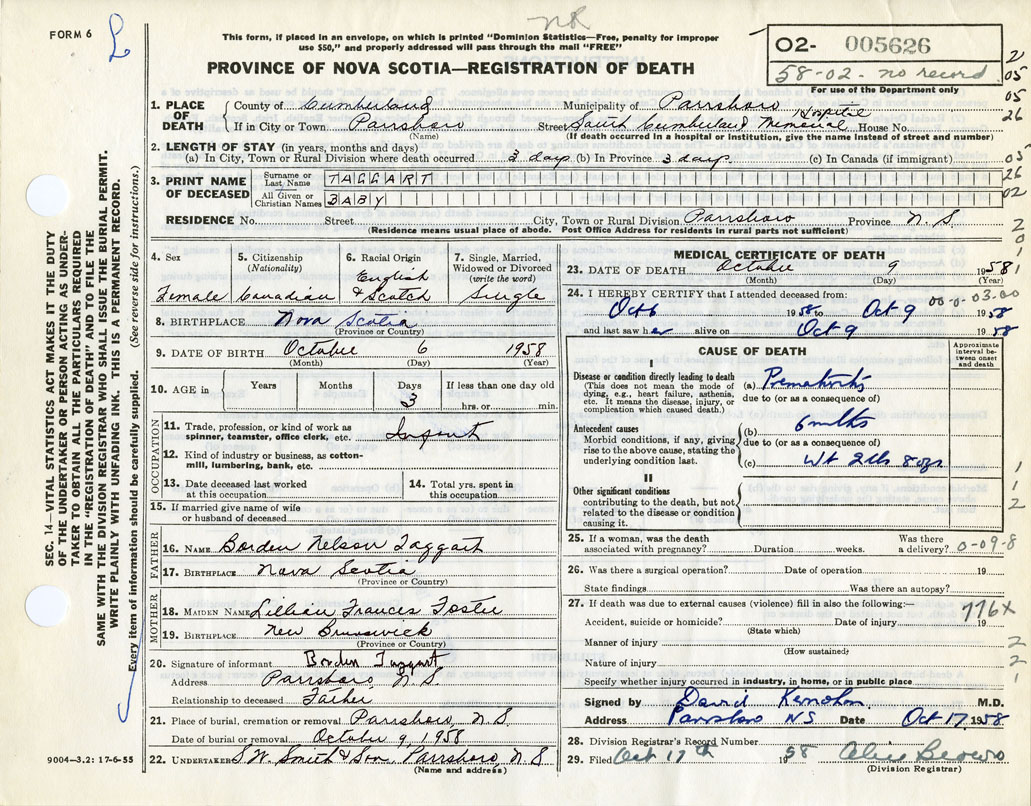 FORM 6
L
NR
This form, if placed in an envelope, on which is printed "Dominion Statistics—Free, penalty for improper
use $50," and properly addressed will pass through the mail "FREE"
PROVINCE OF NOVA SCOTIA—REGISTRATION OF DEATH
02- 005626
58-02- no record
For use of the Department only
2
05
05
26
05
26
02
1. PLACE OF DEATH
County of Cumberland Municipality of Parrsboro
If in City or Town Parrsboro Street South Cumberland Memorial Hospital House No.
(Name) (If death occurred in a hospital or institution, give the name instead of street and number)
2. LENGTH OF STAY (in years, months and days)
(a) In City, Town or Rural Division where death occurred 3 days (b) In Province 3 days. (c) In Canada (if immigrant)
3. PRINT NAME OF DECEASED
Surname or Last Name TAGGART
All Given or Christian Names BABY
RESIDENCE No. Street City, Town or Rural Division Parrsboro Province N.S.
(Residence means usual place of abode. Post Office Address for residents in rural parts not sufficient)
4. Sex
Female
5. Citizenship
(Nationality)
Canadian
6. Racial Origin
English
& Scotch
7. Single, Married,
Widowed or Divorced
(write the word)
Single
8. BIRTHPLACE Nova Scotia
(Province or Country)
9. DATE OF BIRTH October 6 1958
(Month) (Day) (Year)
10. AGE in Years Months Days If less than one day old
3 hrs. or min.
OCCUPATION
11. Trade, profession, or kind of work as
spinner, teamster, office clerk, etc. Infant
12. Kind of industry or business, as cotton-
mill, lumbering, bank, etc.
13. Date deceased last worked
at this occupation
14. Total yrs. spent in
this occupation
15. If married give name of wife
or husband of deceased
FATHER
16. NAME Borden Nelson Taggart
17. BIRTHPLACE Nova Scotia
(Province or Country)
MOTHER
18. MAIDEN NAME Lillian Frances Foster
19. BIRTHPLACE New Brunswick
(Province or Country)
20. Signature of informant Borden Taggart
Address Parrsboro, N.S.
Relationship to deceased Father
21. Place of burial, cremation or removal Parrsboro, N.S.
Date of burial or removal October 9, 1958
22. UNDERTAKER S.W. Smith & Son Parrsboro, N.S
(Name and address)
MEDICAL CERTIFICATE OF DEATH
23. DATE OF DEATH October 9 1958
(Month) (Day) (Year)
24. I HEREBY CERTIFY that I attended deceased from: 00-0-03.00
Oct 6 1958 to Oct 9 1958
and last saw her alive on Oct 9 1958
CAUSE OF DEATH
Approximate
interval be-
tween onset
and death
I
Disease or condition directly leading to death
(This does not mean the mode of
dying, e.g., heart failure, asthenia,
etc. It means the disease, injury, or
complication which caused death.)
(a) Prematurity
due to (or as a consequence of)
Antecedent causes
Morbid conditions, if any, giving
rise to the above cause, stating the
underlying condition last.
(b) 6 mths
due to (or as a consequence of)
(c) Wt 2 lb 8 ozs
II
Other significant conditions
contributing to the death, but not
related to the disease or condition
causing it.
25. If a woman, was the death Was there
associated with pregnancy? Duration weeks. a delivery? 0-09-8
26. Was there a surgical operation? Date of operation 19
State findings Was there an autopsy?
27. If death was due to external causes (violence) fill in also the following:— 776X
Accident, suicide or homicide? Date of injury 19
(State which)
Manner of injury
(How sustained)
Nature of injury
Specify whether injury occurred in industry, in home, or in public place
Signed by David Kernohan. M.D.
Address Parrsboro NS Date Oct 17 1958
28. Division Registrar's Record Number
29. Filed Oct 17th 1958
(Division Registrar)
SEC. 14—VITAL STATISTICS ACT MAKES IT THE DUTY
OF THE UNDERTAKER OR PERSON ACTING AS UNDER-
TAKER TO OBTAIN ALL THE PARTICULARS REQUIRED
IN THE "REGISTRATION OF DEATH" AND TO FILE THE
SAME WITH THE DIVISION REGISTRAR WHO SHALL ISSUE THE BURIAL PERMIT.
WRITE PLAINLY WITH UNFADING INK. THIS IS A PERMANENT RECORD.
Every item of information should be carefully supplied. (See reverse side for instructions.)
9004—3.2: 17-6-55